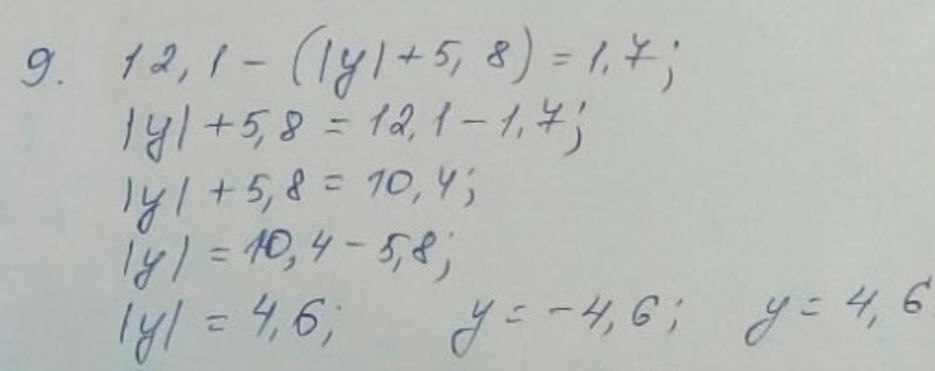 9. 12,1 - (|y| + 5,8) = 1,7;
|y| + 5,8 = 12,1 - 1,7;
|y| + 5,8 = 10,4;
|y| = 10,4 - 5,8;
|y| = 4,6; y = -4,6; y = 4,6